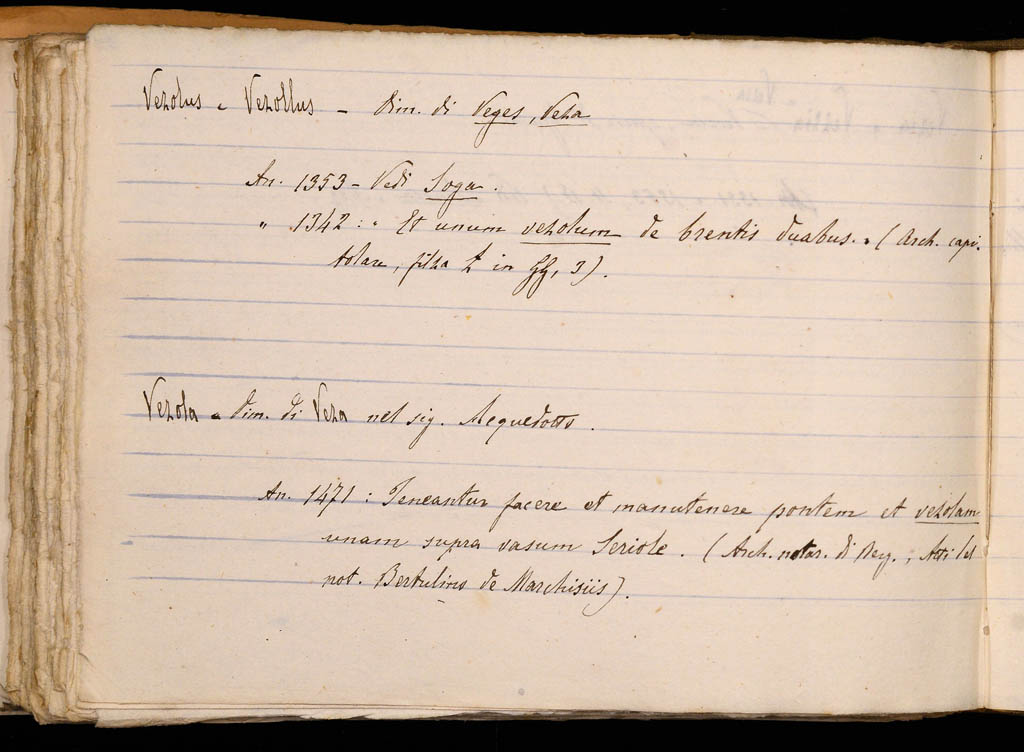 Vezolus e Vezollus – Dim. di Veges, Veza
An. 1353 – Vedi Soga.
„ 1342: „ Et unum vezolum de brentis duabus. „ (Arch. capi-
tolare, filza in 3).
Vezola = Dim. di Veza nel sig. Acquedotto.
An. 1471: Teneantur facere et manutenere pontem et vezolam
unam supra vasum Seriole. (Arch. notar. di Berg., Atti del
not. Bertulino de Marchisiis).